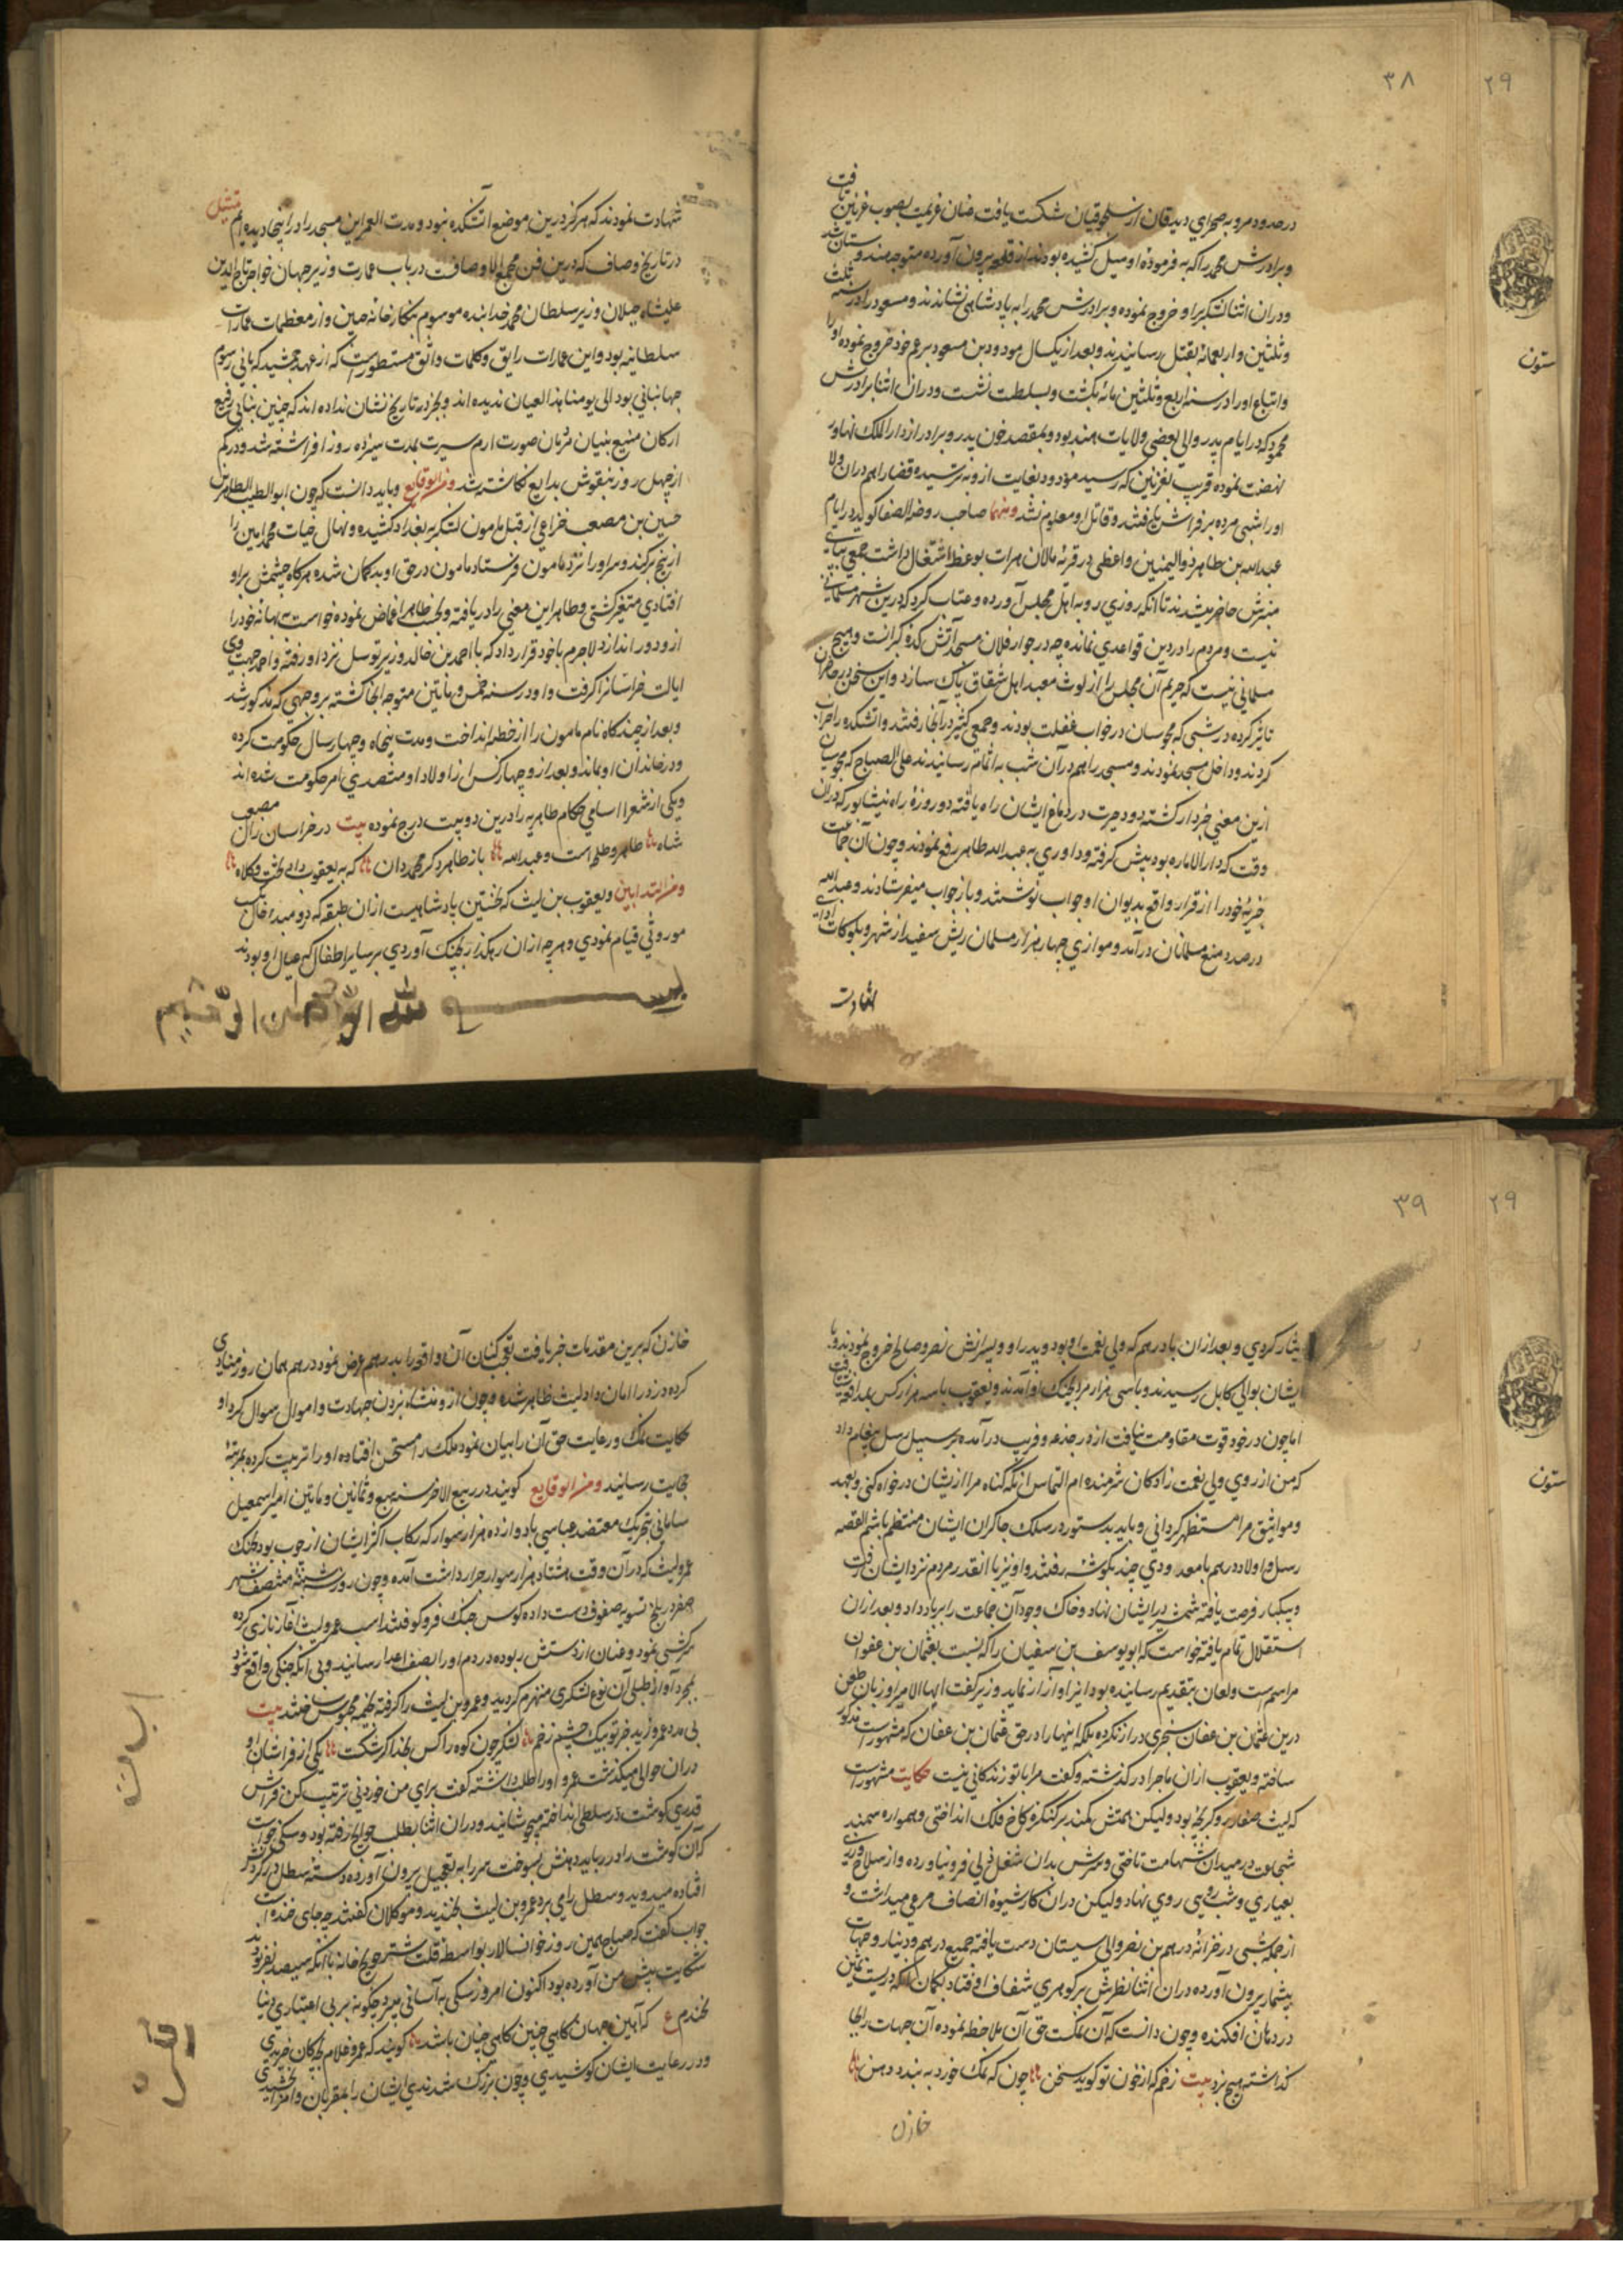 ۳۸
۲۹
ستون
در حدود مرو به صحرای دیدقان از سلجوقیان شکست یافت عنان عزیمت بصوب غزنین تافت
و برادرش محمد را که به فرموده او میل کشیده بودند از قلعه بیرون آورده متوجه هندوستان شد
و دران اثنا لشکر برو خروج نموده و برادرش محمد را به پادشاهی نشاندند و مسعود را در سنه ثلث
و ثلثین و اربعمائه بقتل رسانیدند و بعد از یکسال مودود بن مسعود بر عم خود خروج نموده او را
و اتباع او را در سنه اربع و ثلثین مائه بکشت و بسلطنت نشست و دران اثنا برادرش
محمود که در ایام پدر والی بعضی ولایات هند بود و بمقصد خون پدر و برادر از دار الملک لهاور
نهضت نموده قریب بغزنین که رسید مودود بغایت ازو بترسیده قضا را هم دران ولا
او را شبی مرده بر فراش یافتند و قاتل او معلوم نشد ومنها صاحب روضة الصفا کوید در ایام
عبدالله بن طاهر ذوالیمنین واعظی در قریه مالان هرات بوعظ اشتغال داشت جمعی بپای
منبرش حاضر میشدند تا انکه روزی رو به اهل مجلس آورده و عتاب کرد که درین شهر مسلمانی
نیست و مردم را در دین قواعدی نمانده چه در جوار فلان مسجد آتش کده کبرانست و هیچ
مسلمانی نیست که حریم آن مجلس را از لوث معبد اهل شقاق پاک سازد و این سخن در حاضران
تاثیر کرده در شبی که مجوسان در خواب غفلت بودند و جمعی کثیر در آنجا رفتند و اتشکده را خراب
کردند و داخل مسجد نمودند و مسجد را هم در آن شب به اتمام رسانیدند علی الصباح که مجوسیان
ازین معنی خبردار کشته دود حیرت در دماغ ایشان راه یافته دو روزه راه نیشابور که دران
وقت که دار الاماره بود پیش کرفته و داوری به عبدالله طاهر رفع نمودند و چون آن جماعت
جزیه خود را از قرار واقع بدیوان او جواب نوشتند و باز جواب میفرستادند و عبدالله
در صدد منع مسلمانان در آمد و موازی چهار هزار مسلمان ریش سفید از شهر و بلوکات ادای
شهادت
شهادت نمودند که هرکز درین موضع آتشکده نبود و مدت العمر این مسجد را در اینجا دیده ایم تمثیل
در تاریخ وصاف که درین فن مجمع الاوصافست در باب عمارت وزیر جهان خواجه تاج الدین
علیشاه جیلان وزیر سلطان محمد خدابنده موسوم بنکارخانه چین و از معظمات عمارات
سلطانیه بود و این عمارات رایق و کلمات واثق مستطورست که از عهد جمشید که بانی رسوم
جهانبانی بود الی یومنا هذا العیان ندیده اند و بخبر در تاریخ نشان نداده اند که چنین بنایی رفیع
ارکان منیع بنیان مزیان صورت ارم سیرت بمدت سیزده روز افراشته شد و در کم
از چهل روز بنقوش بدایع نکاشته شد ومن الوقایع و باید دانست که چون ابو الطیب الطاهر بن
حسین بن مصعب خزاعی از قبل مامون لشکر به بغداد کشیده و نهال حیات محمد امین را
از بیخ برکند و سر او را نزد مامون فرستاد مامون در حق او بد کمان شده هرکاه چشمش برو
افتادی متغیر کشتی و طاهر این معنی را دریافته و بحسب ظاهر اغماض نموده خواست به بهانه خود را
ازو دور اندازد لاجرم با خود قرار داد که با احمد بن خالد وزیر توسل نزد او رفته و احمد جهت وی
ایالت خراسانرا کرفت و او در سنه خمس و مأتین متوجه انجا کشته بر وجهی که مذکور شد
و بعد از چند کاه نام مامون را از خطبه انداخت و مدت پنجاه و چهار سال حکومت کرده
و در خاندان او بماند و بعد ازو چهار کس از اولاد او متصدی امر حکومت شده اند
و یکی از شعرا اسامی حکام طاهریه را درین دو بیت درج نموده بیت در خراسان ز آل مصعب
شاه طاهر و طلحه است و عبدالله باز طاهر دکر محمد دان که به یعقوب داد تخت و کلاه
ومن ابتدا این و یعقوب بن لیث که نخستین پادشاهیست از ان طبقه که دو مبدا حال بکسب
موروثی قیام نمودی و هرچه از ان رهکذر بچنک آوردی بر سایر اطفال که عیال او بودند
بسم الله الرحمن الرحیم
۳۹
۲۹
ستون
ایثار کردی و بعد از ان با درهم که ولی نعمت او بود و پدر او و پسرانش نصر و صالح خروج نمودند و با
ایشان بوالی کابل رسیدند و با سی هزار مرد بجنک او آمدند و یعقوب با سه هزار کس بمدافعه شتافت
اما چون در خود قوت مقاومت نیافت از در خدعه و فریب در آمده بر سبیل رسل پیغام داد
که من از روی ولی نعمت زادکان شرمنده ام التماس انکه کناه مرا از ایشان درخواه کنی و بعهد
و مواثیق مرا مستظهر کردانی و باید بدستور در سلک چاکران ایشان منتظم باشم القصه
رسل و اولاد درهم با معدودی چند بکوشه رفتند و او نیز با انقدر مردم نزد ایشان رفت
و بیکبار فرصت یافته شمشیر در ایشان نهاد و خاک وجود آن جماعت را بر باد داد و بعد ازان
استقلال تمام یافته خواست که ابو یوسف بن سفیان را که نسبت بعثمان بن عفوان
مراسم سب و لعان بتقدیم رسانیده بود ایذا و آزار نماید وزیر کفت ایها الامیر او زبان طعن
درین عثمان بن عفان سنجری دراز نکرده بلکه اینها را در حق عثمان بن عفان که مشهور است مذکور
ساخته و یعقوب از ان ماجرا در کذشته و کفت مرا با تو زندکانی نیست حکایت مشهور است
که لیث صفار رو کر بچه بود ولیکن همتش کمند بر کنکره کاخ فلک انداختی و همواره سمند
شجاعت در میدان شهامت تاختی و سرش بدان شغل دنی فرو نیاورده و از سلاح ورزی
بعیاری و شب روی روی نهاد ولیکن دران کار شیوه انصاف مرعی میداشت و
از جمله شبی در خزانه درهم بن نصر والی سیستان دست یافته جمیع درهم و دینار و جهات
بیشمار بیرون آورده دران اثنا نظرش بر کوهری شفاف اوفتاد بکمان انکه دریست ثمین
در دهان افکنده و چون دانست که آن نمکست حق آن ملاحظه نموده آن جهات را بجا
کذاشته هیچ نبرد بیت زخم که از خون تو کوید سخن چون که نمک خورد به بندد دهن
خازن
خازن که برین مقدمات خبر یافت تعجب کنان آن واقعه را بدرهم عرض نمود درهم همان روز منادی
کرده دزد را امان داد لیث ظاهر شده و چون ازو منشاء نبردن جهات و اموال سوال کرد او
حکایت نمک و رعایت حق آن را بیان نمود ملک را مستحسن افتاده او را تربیت کرده بمرتبه
حمایت رسانید ومن الوقایع کویند در ربیع الاخر سنه سبع و ثمانین و مأتین امیر اسمعیل
سامانی بتحریک معتضد عباسی با دوازده هزار سوار که رکاب اکثر ایشان از چوب بود بجنک
عمرو لیث که در آن وقت هشتاد هزار سوار جرار داشت آمده و چون روز سه شنبه منتصف شهر
صفر در بلخ تسویه صفوف دست داده کوس جنک فرو کوفتند اسب عمرو لیث آغاز تازی کرده
سرکشی نمود و عنان از دستش ربوده در دم او را بصف اعدا رسانید و بی انکه جنکی واقع شود
بمجرد آواز طبلی آن نوع لشکری منهزم کردید و عمرو بن لیث را کرفته بخیمه محبوس ساختند بیت
بی مدد عمرو زید خر توبیک چشم زخم لشکر چون کوه را کس بخدا کر شکست یکی از فراشان او
دران حوالی میکذشت عمرو او را طلب داشته کفت برای من خوردنی ترتیب کن فراش
قدری کوشت در سطلی انداخته میجوشانید و دران اثنا بطلب حوایج رفته بود و سکی خواست
که آن کوشت را در رباید دهنش بسوخت سر را به تعجیل بیرون آورده دسته سطل در کردنش
افتاده میدوید و سطل را می برد عمرو بن لیث بخندید و موکلان کفتند چه جای خنده است
جواب کفت که صباح همین روز خوانسالار بواسطه قلت شتر حوایج خانه با انکه سیصد نفر بود
شکایت پیش من آورده بود اکنون امروز سکی به آسانی میبرد چکونه بر بی اعتباری دنیا
نخندم ع که آیین جهان کاهی چنین کاهی چنان باشد کویند که عمرو غلام بچکان خریدی
و در رعایت ایشان کوشیدی و چون بزرک شدندی ایشان را بمقربان و امرا بخشیدی